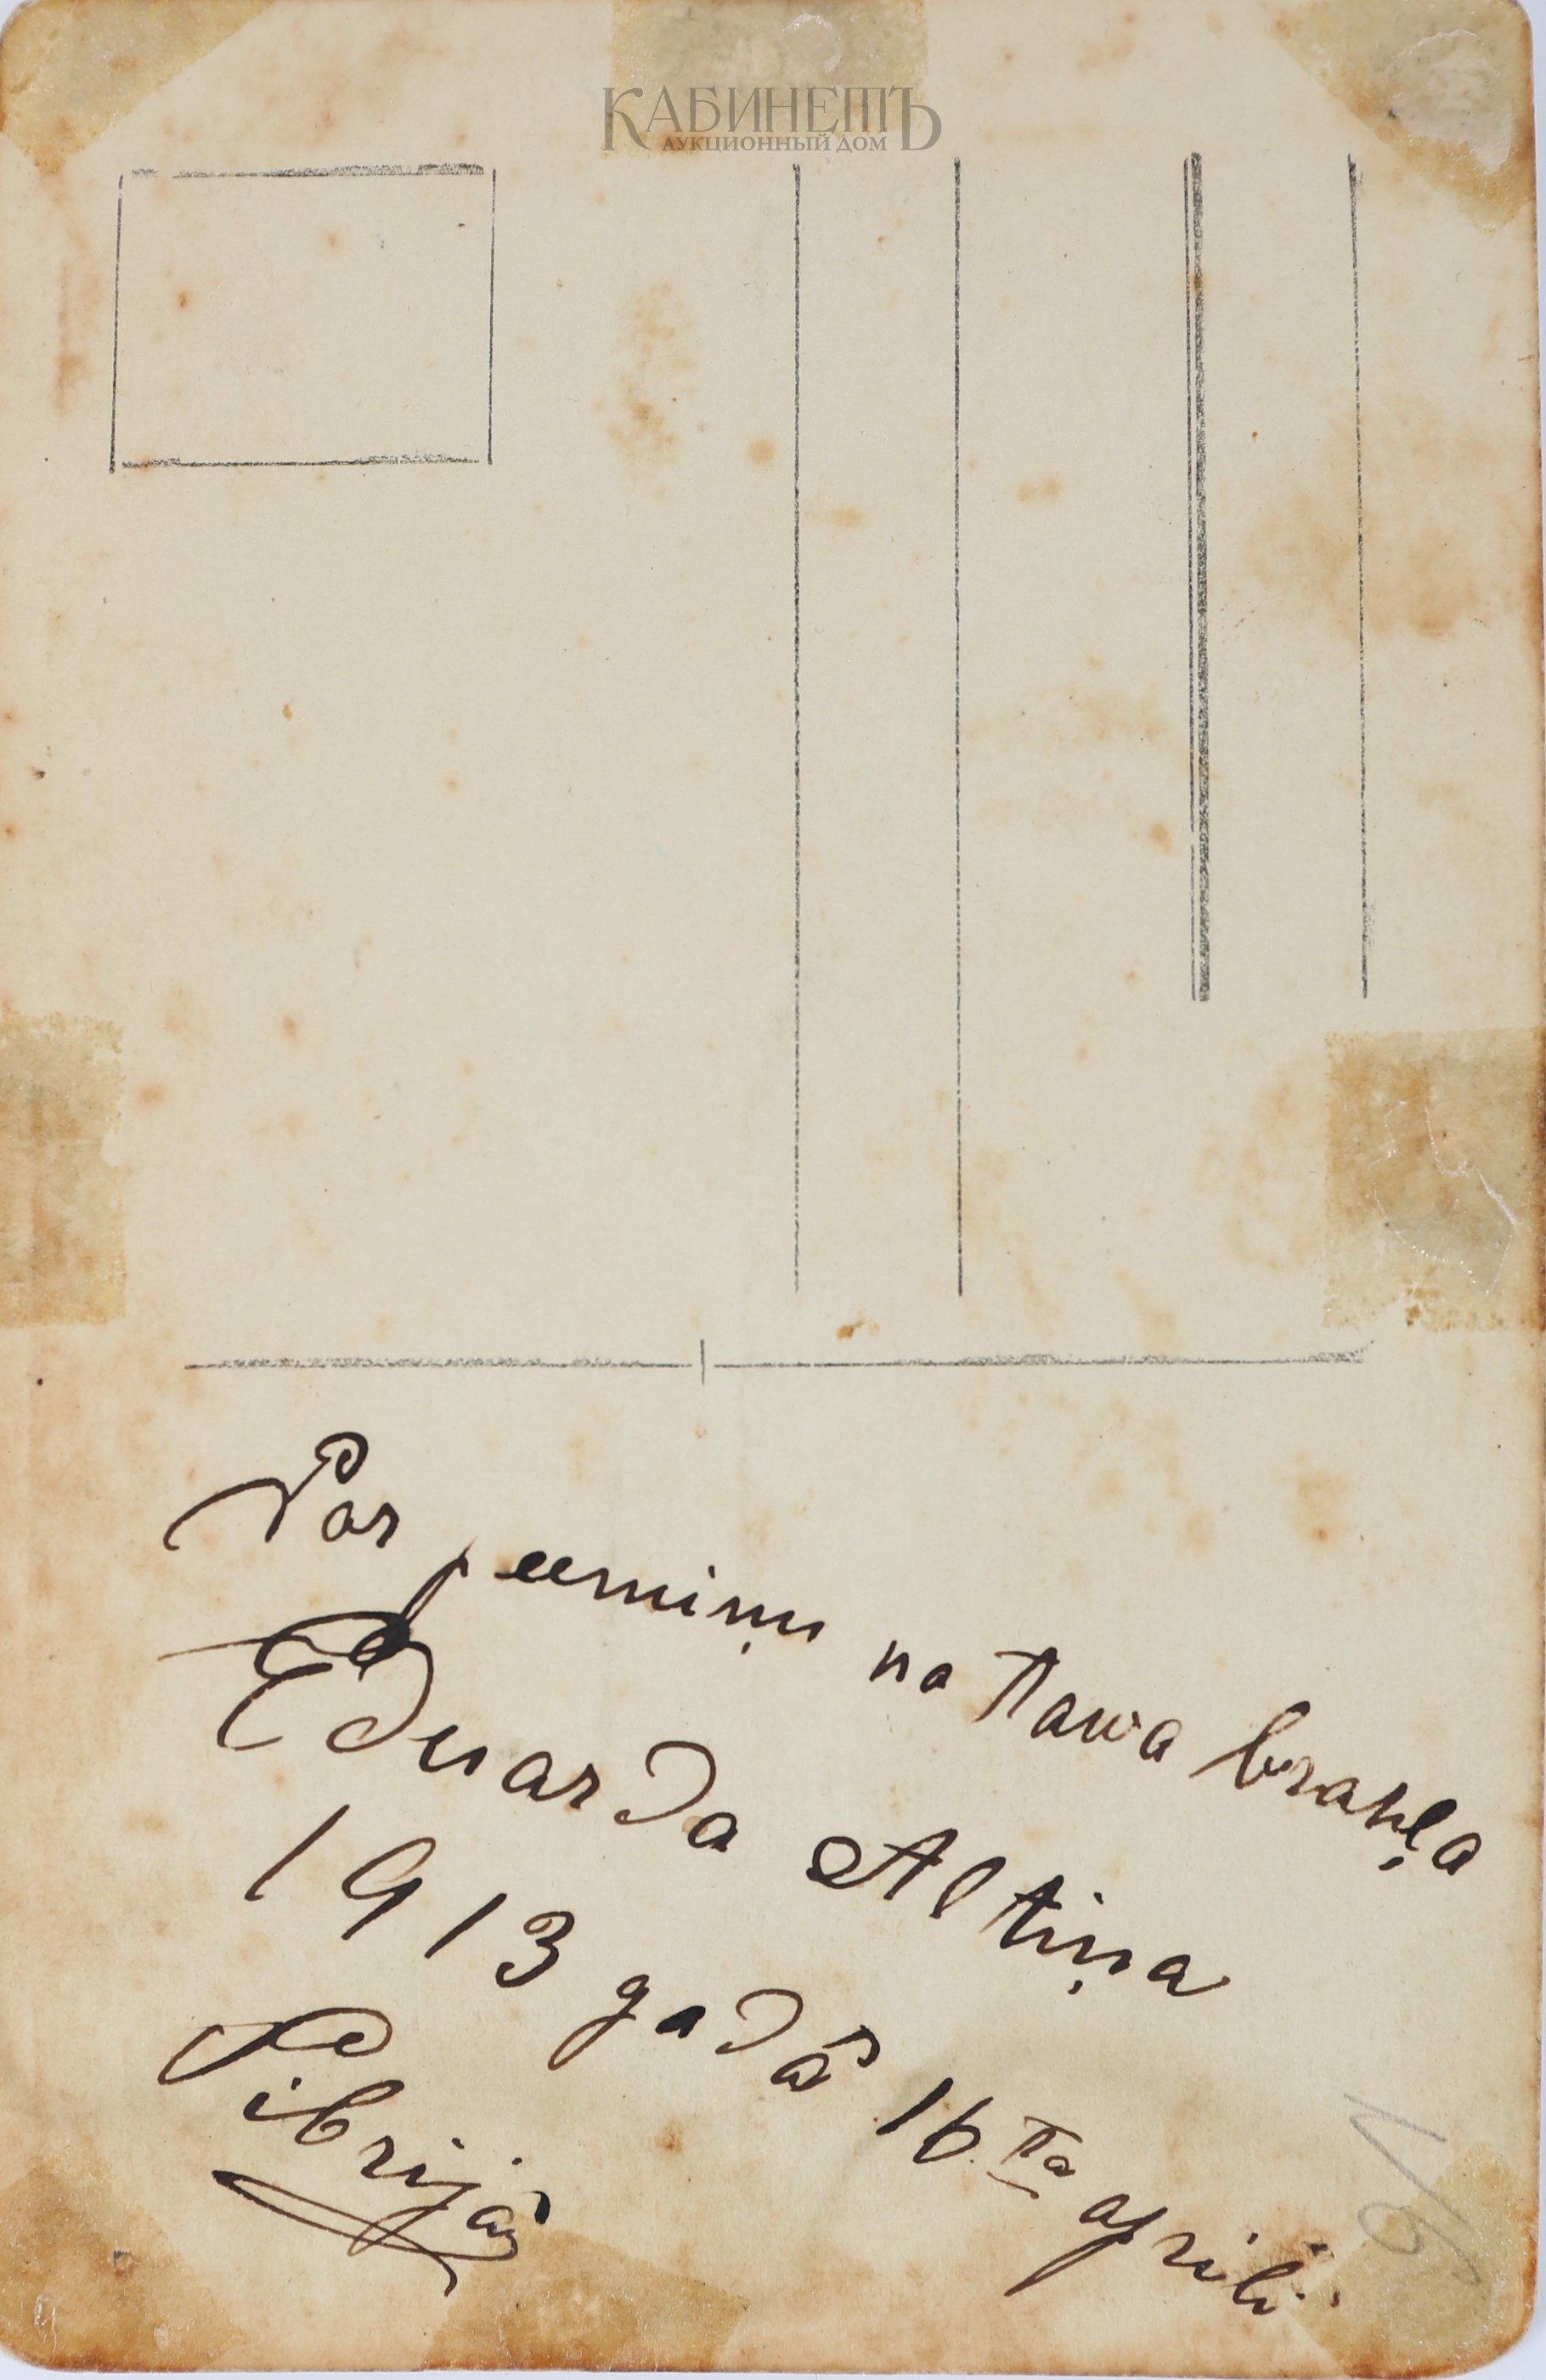 КАБИНЕТЪ
АУКЦИОННЫЙ ДОМ
Par peemiņu no Tawa brahļa
Eduarda Altiņa
1913 gadâ 16 Ta aprilî
Sibrijâ
16